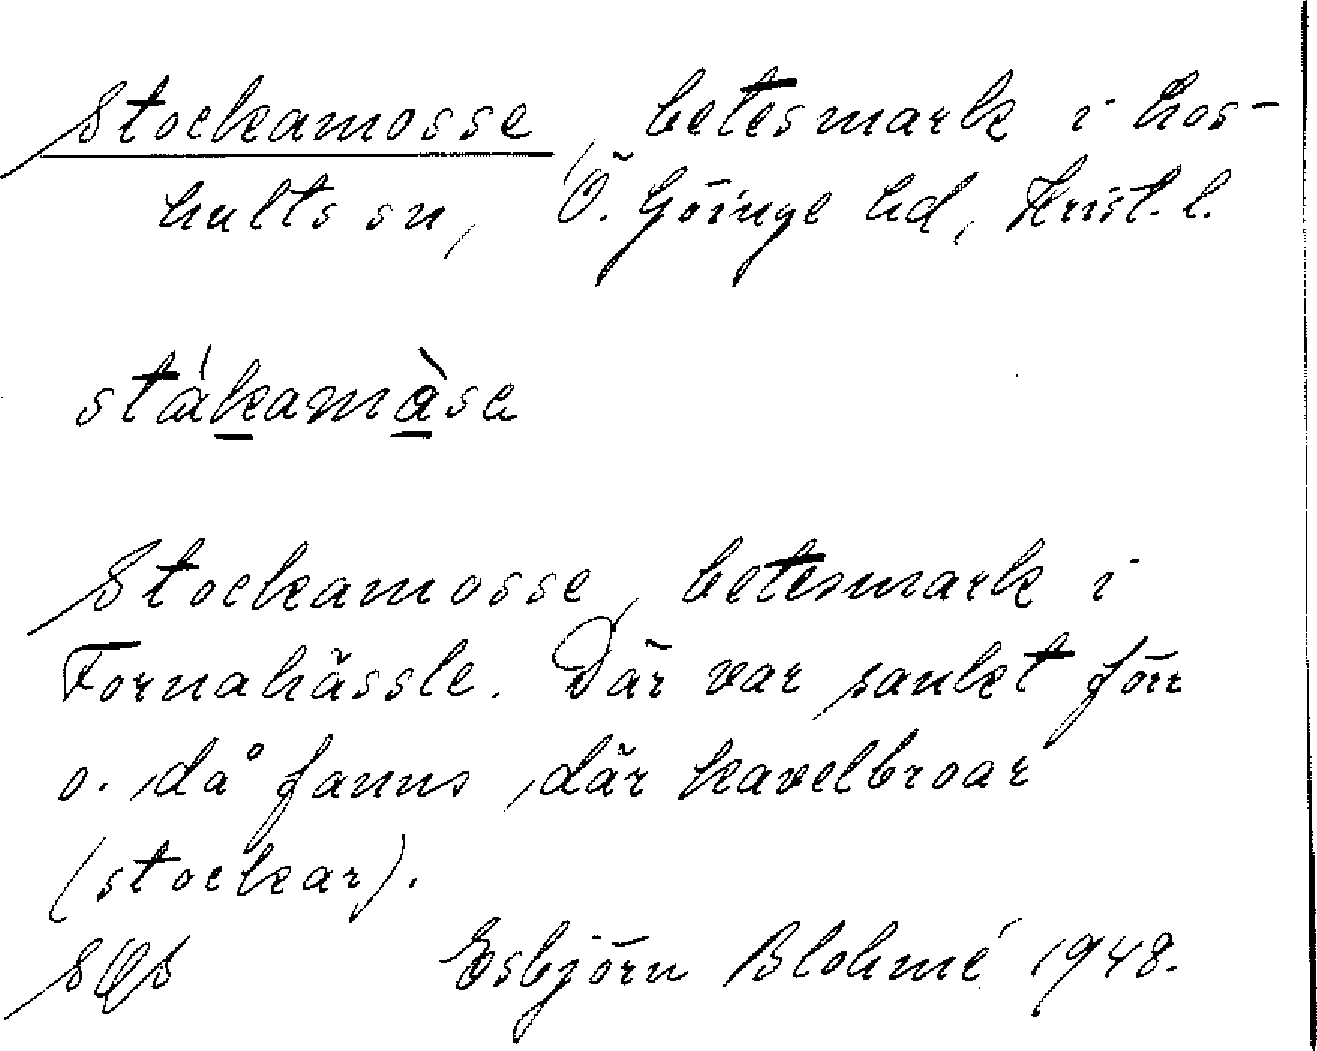 Stockamosse, betesmark i Los-
hults sn, Ö. Göinge hd, Krist. l.
ståkamåsa
Stockamosse, betesmark i
Fornahässle. Där var sankt förr
o. då fanns där kavelbroar
(stockar).
Esbjörn Blohmé 1948.